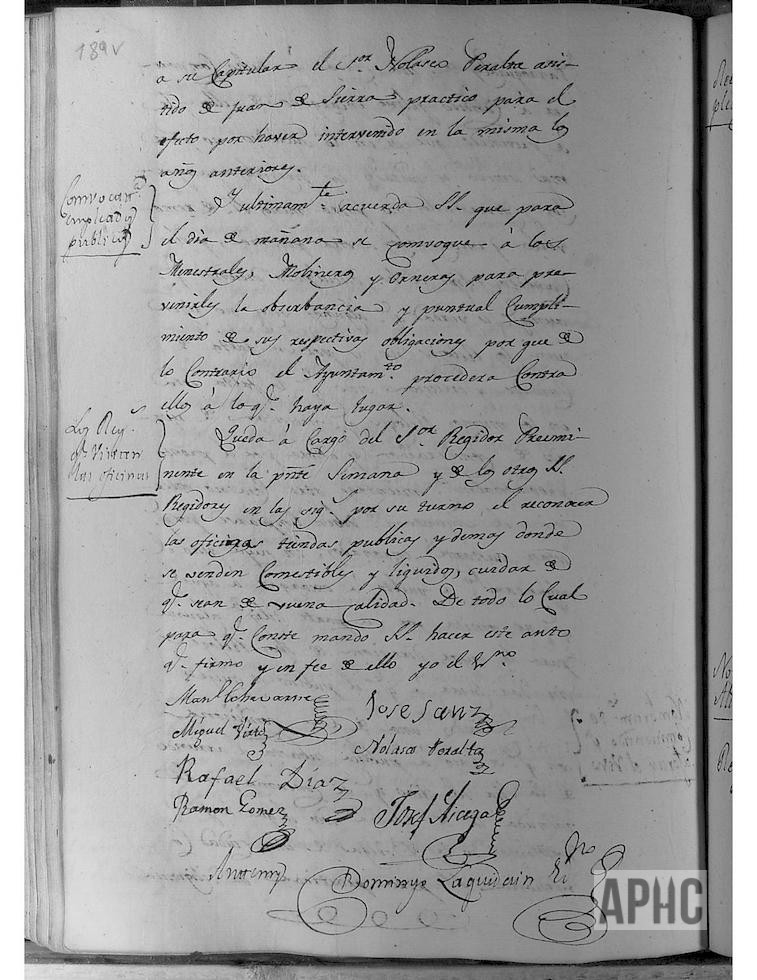 189v
a su Capitular el Sor. Nolasco Peralta asis-
tido de Juan de Sierra practico para el
efecto por haver intervenido en la misma los
años anteriores.
Convocar
empleados
publicos
Y ultimamte. acuerda SS. que para
el dia de mañana se convoque à los
Menestrales, Molineros y Orneros para pre-
venirles la obserbancia y puntual Cumpli-
miento de sus respectivas obligaciones por que de
lo Contrario el Ayuntamto. procedera Contra
ellos à lo q. haya lugar.
Los Reys.
q. Visitan
las oficinas
Queda à Cargo del Sor. Regidor Preemi-
nente en la pnte Semana y de los otros SS.
Regidores en las sigs. por su turno el reconocer
las oficinas tiendas publicas y demas donde
se venden Comestibles y liquidos, cuidar de
q. sean de vuena calidad. De todo lo Cual
para q. Conste mando SS. hacer este auto
q. firmo y en fee de ello yo el Esno.
Manl. Echavarria
Jose Sanz
Miguel
Nolasco Peralta
Rafael Diaz
Ramon Gomez
Josef
Antemi
Domingo Laquidain Esno
APHC